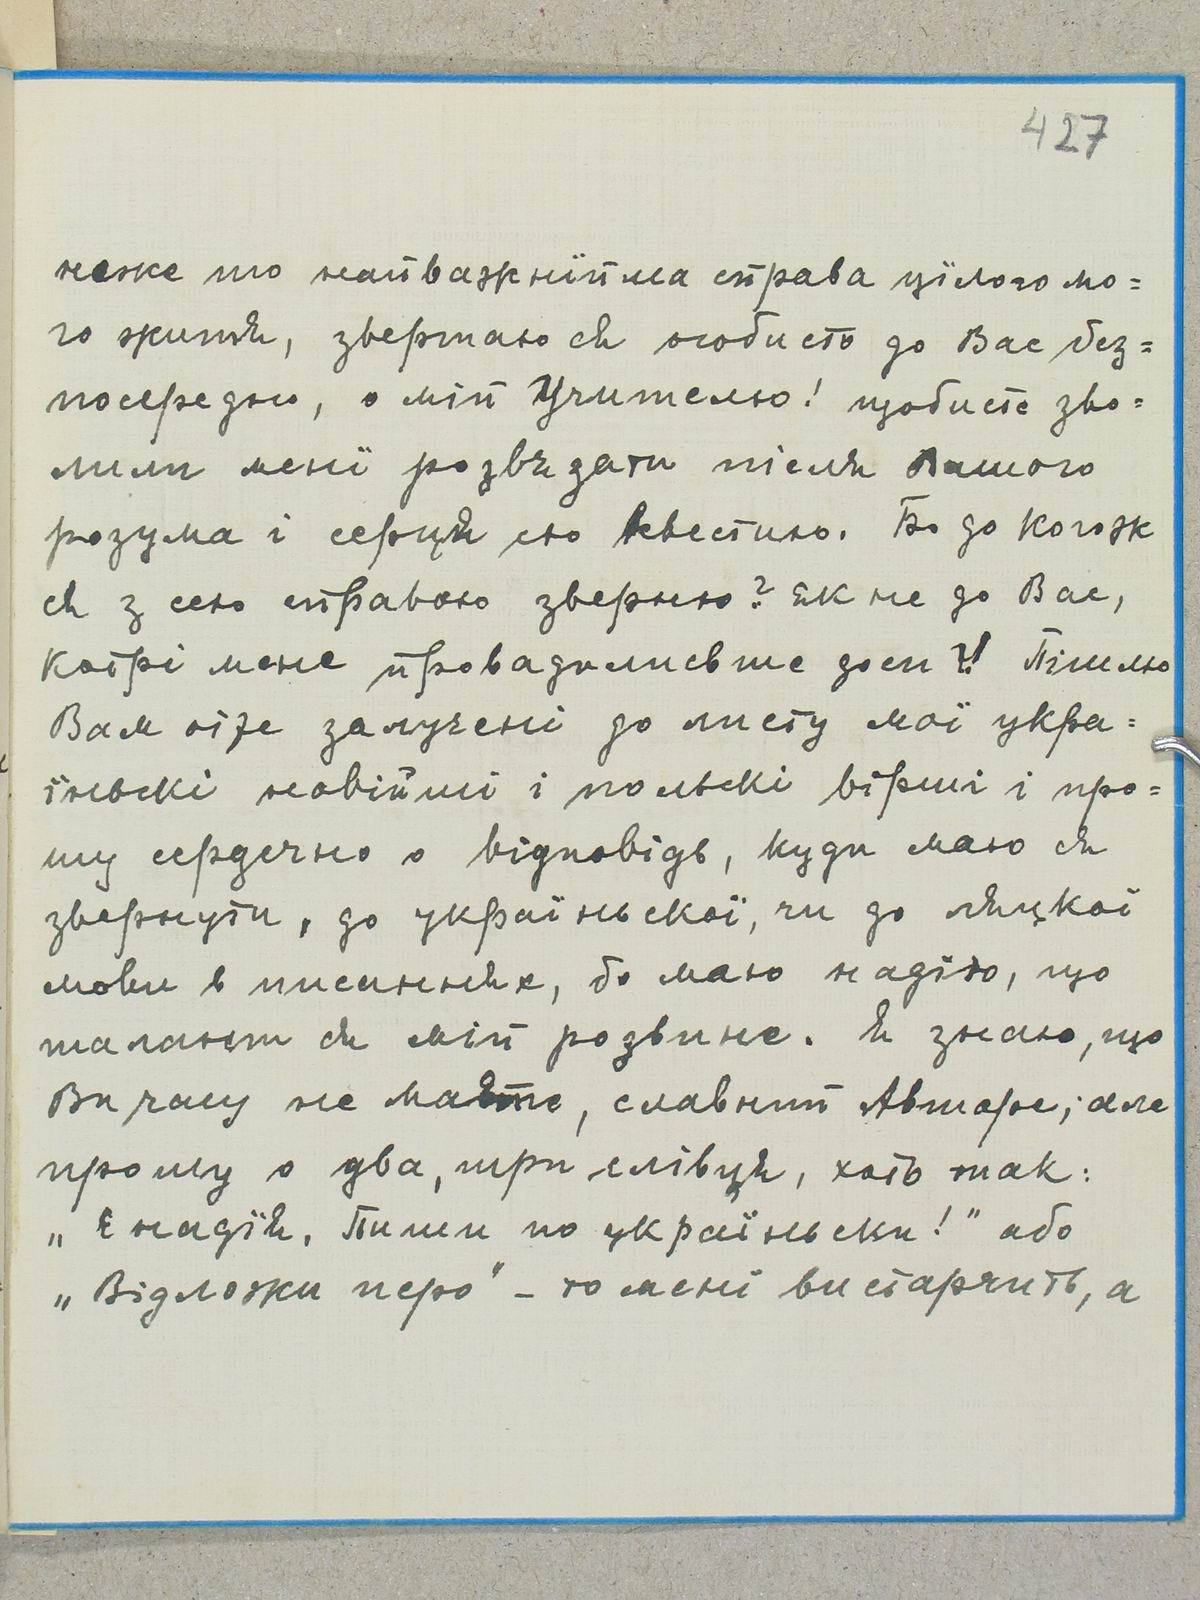 427
неже то найважнїйша справа цїлого мо=
го житя, звертаю ся особисто до Вас без=
посередно, о мій Учителю! щобисте зво=
лили менї розвязати після Вашого
розума і серця сю квестию. Бо до когож
ся з сею справою зверну? Як не до Вас,
котрі мене провадилисьте доси?! Пішлю
Вам отже залучені до листу мої укра=
їньскі новійші і польскі вірші і про=
шу сердечно о відповідь, куди маю ся
звернути, до україньскої, чи до ляцкої
мови в писаннях, бо маю надїю, що
талант ся мій розвине. Я знаю, що
Ви часу не маєте, славний Авторе; але
прошу о два, три слівця, хоть так:
„Є надїя, Пиши по україньски!" або
„Відложи перо" – то мені вистарчить, а